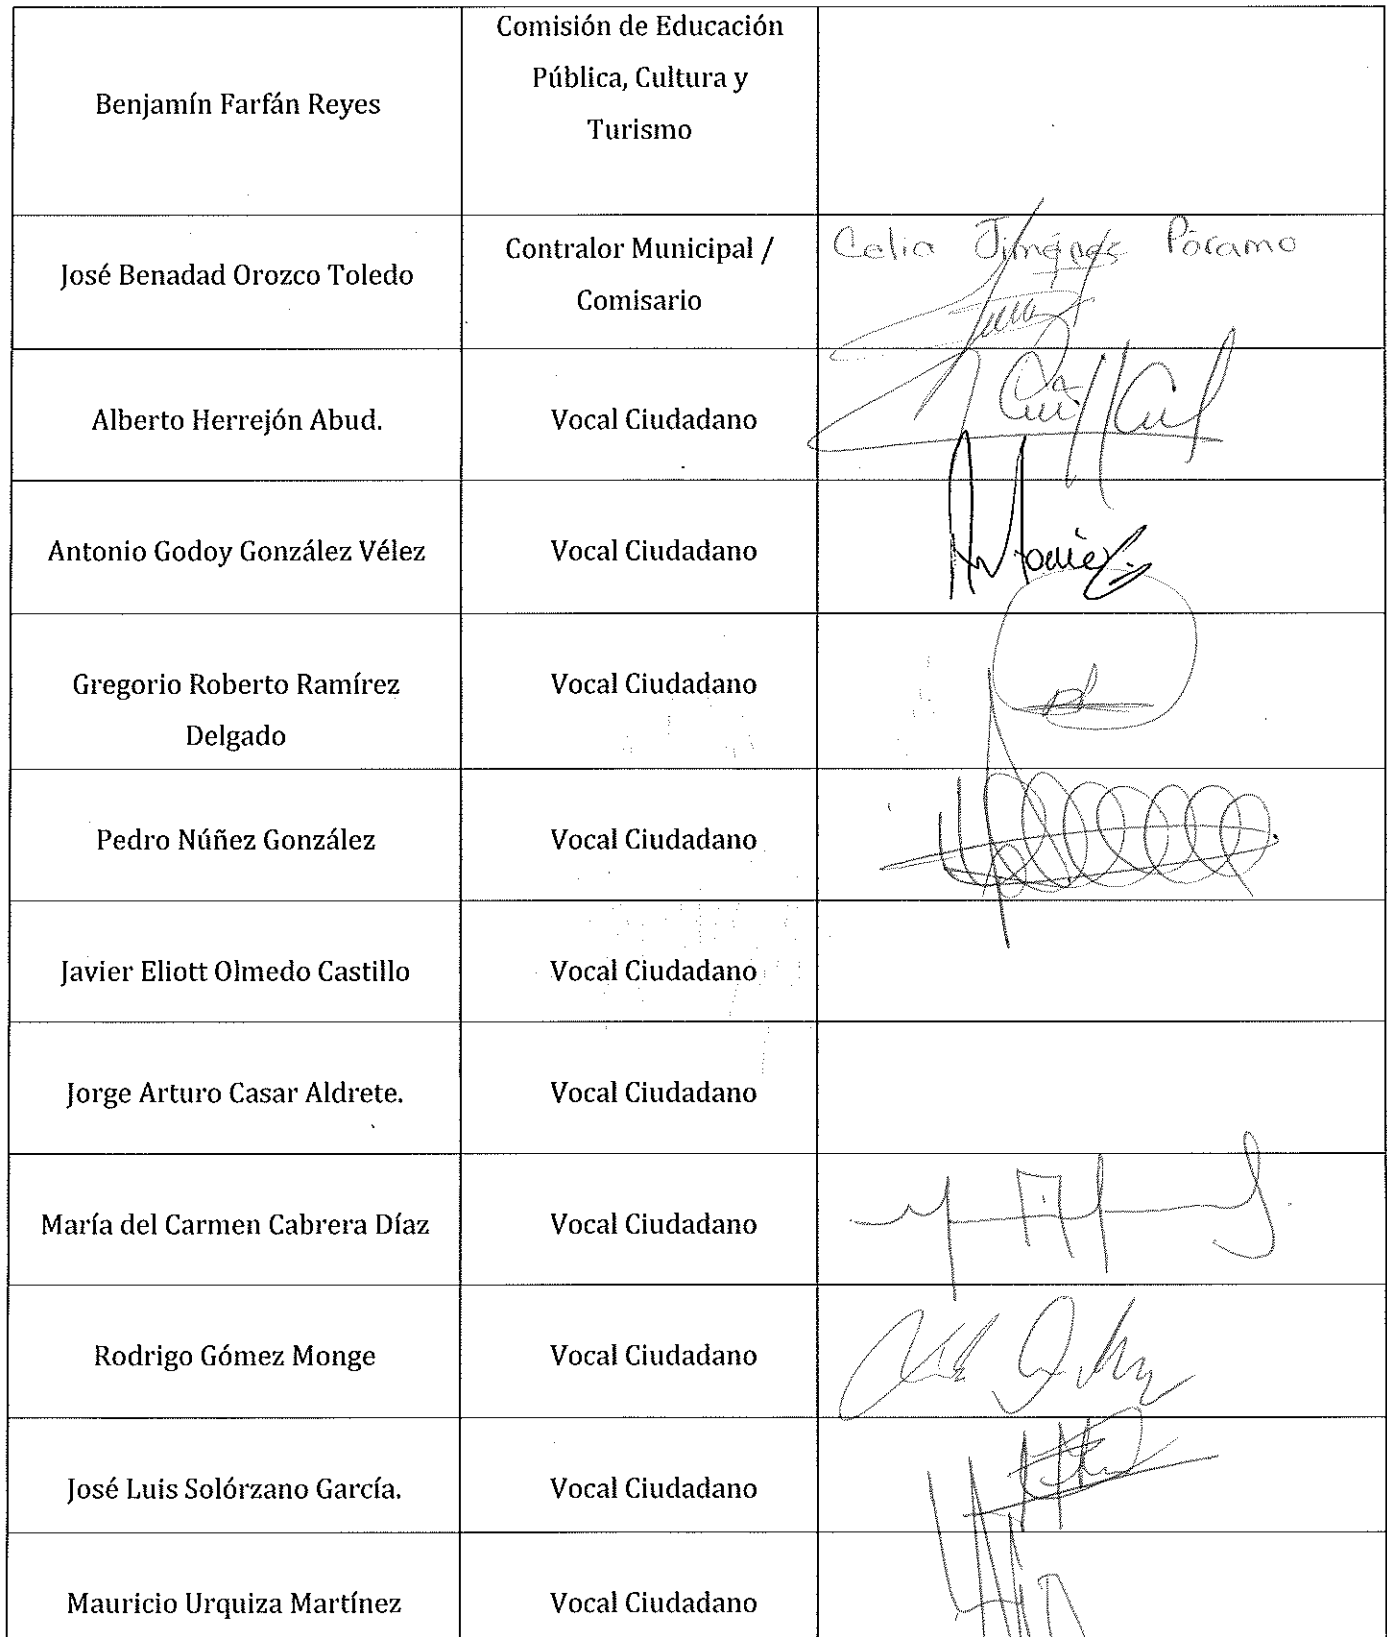 Benjamín Farfán Reyes
Comisión de Educación
Pública, Cultura y
Turismo
José Benadad Orozco Toledo
Contralor Municipal /
Comisario
Celia Jiménez Páramo
Alberto Herrejón Abud.
Vocal Ciudadano
Antonio Godoy González Vélez
Vocal Ciudadano
Gregorio Roberto Ramírez
Delgado
Vocal Ciudadano
Pedro Núñez González
Vocal Ciudadano
Javier Eliott Olmedo Castillo
Vocal Ciudadano
Jorge Arturo Casar Aldrete.
Vocal Ciudadano
María del Carmen Cabrera Díaz
Vocal Ciudadano
Rodrigo Gómez Monge
Vocal Ciudadano
José Luis Solórzano García.
Vocal Ciudadano
Mauricio Urquiza Martínez
Vocal Ciudadano